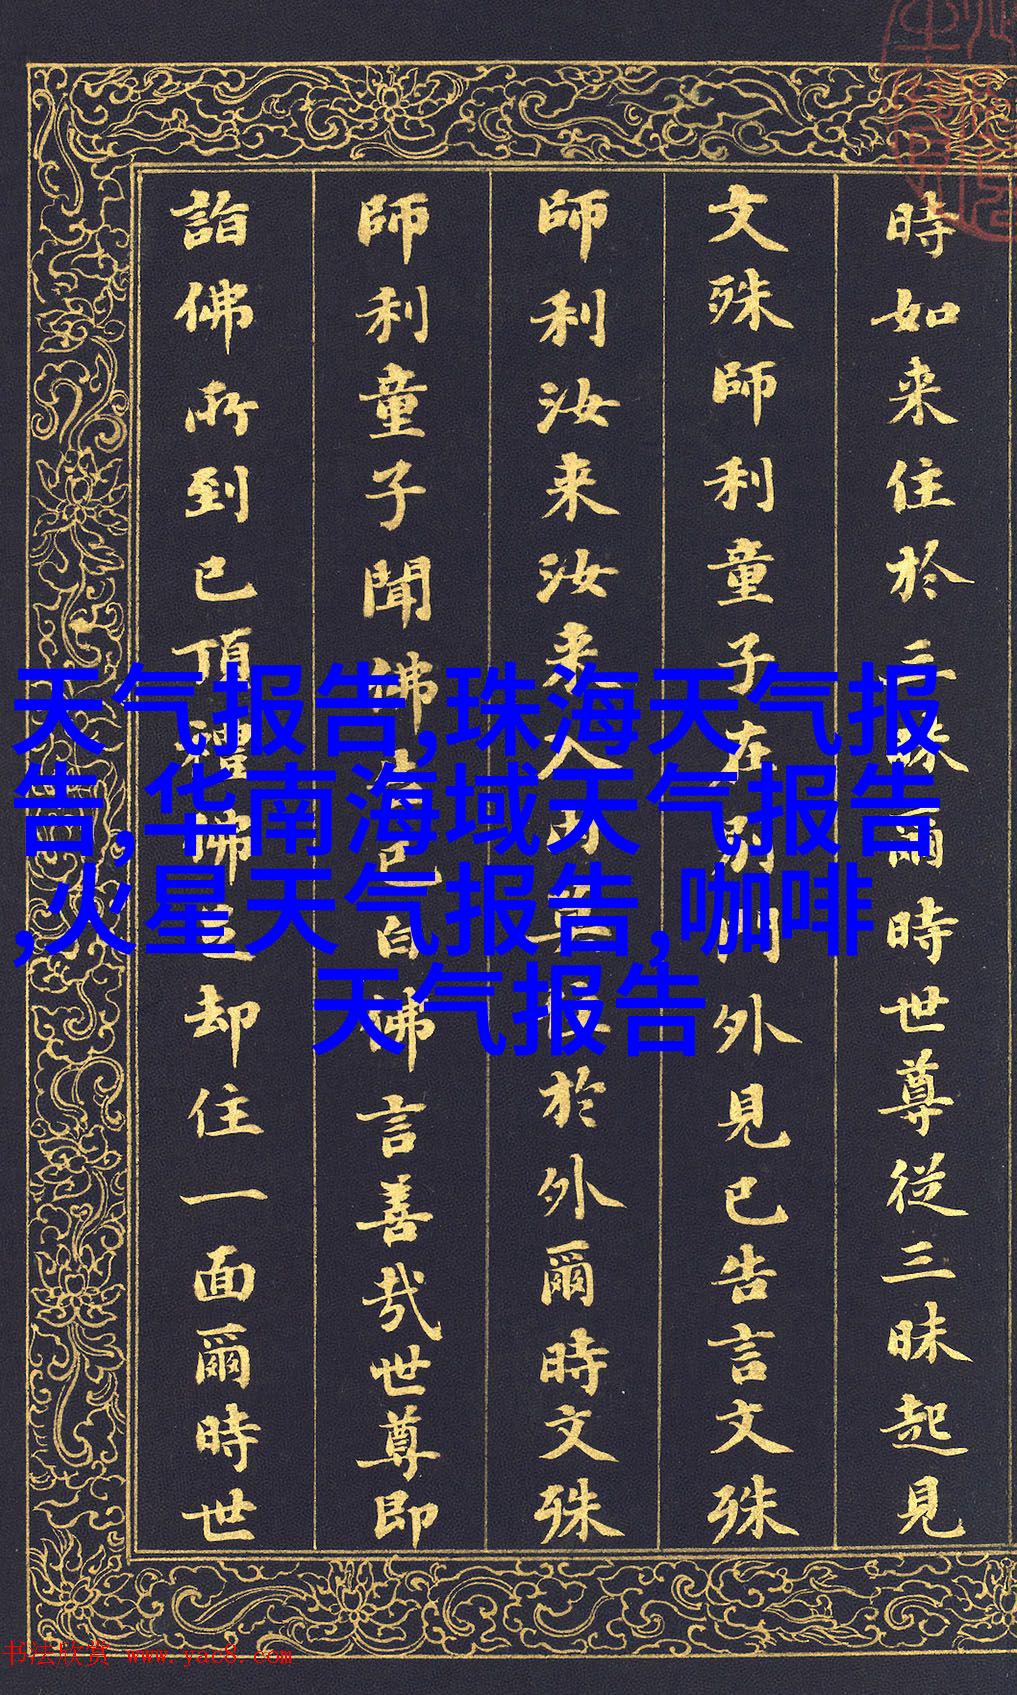 時如来住於三昧爾時世尊従三昧起見
文殊師利童子在別門外見已告言文殊
師利汝来汝来入内住於外爾時文殊
師利童子聞佛告已白佛言善哉世尊即
詣佛所到已頂禮佛足却住一面爾時世
天气报告,珠海天气报
告,华南海域天气报告
,火星天气报告,咖啡
天气报告
书法欣赏 www.yac8.com